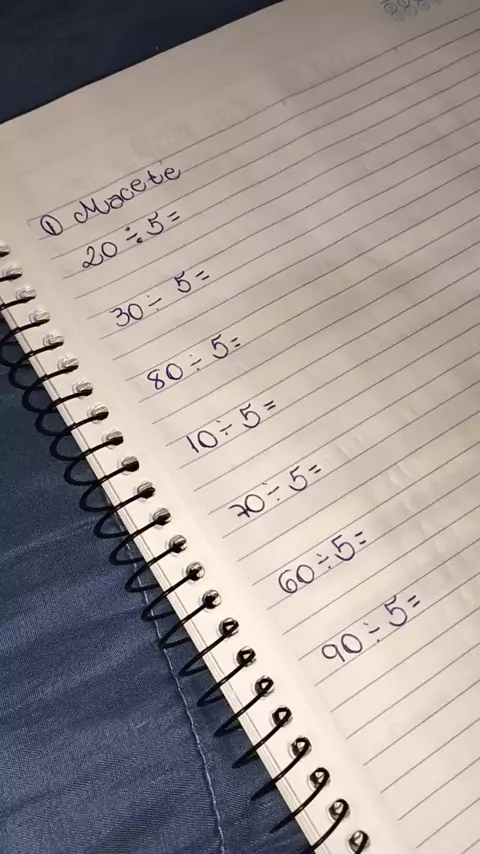 ① Macete
20 ÷ 5 =
30 ÷ 5 =
80 ÷ 5 =
10 ÷ 5 =
70 ÷ 5 =
60 ÷ 5 =
90 ÷ 5 =